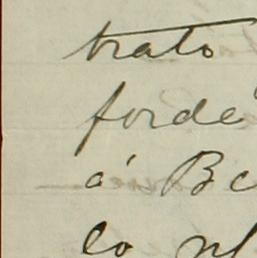 trato
forde
á Be
co